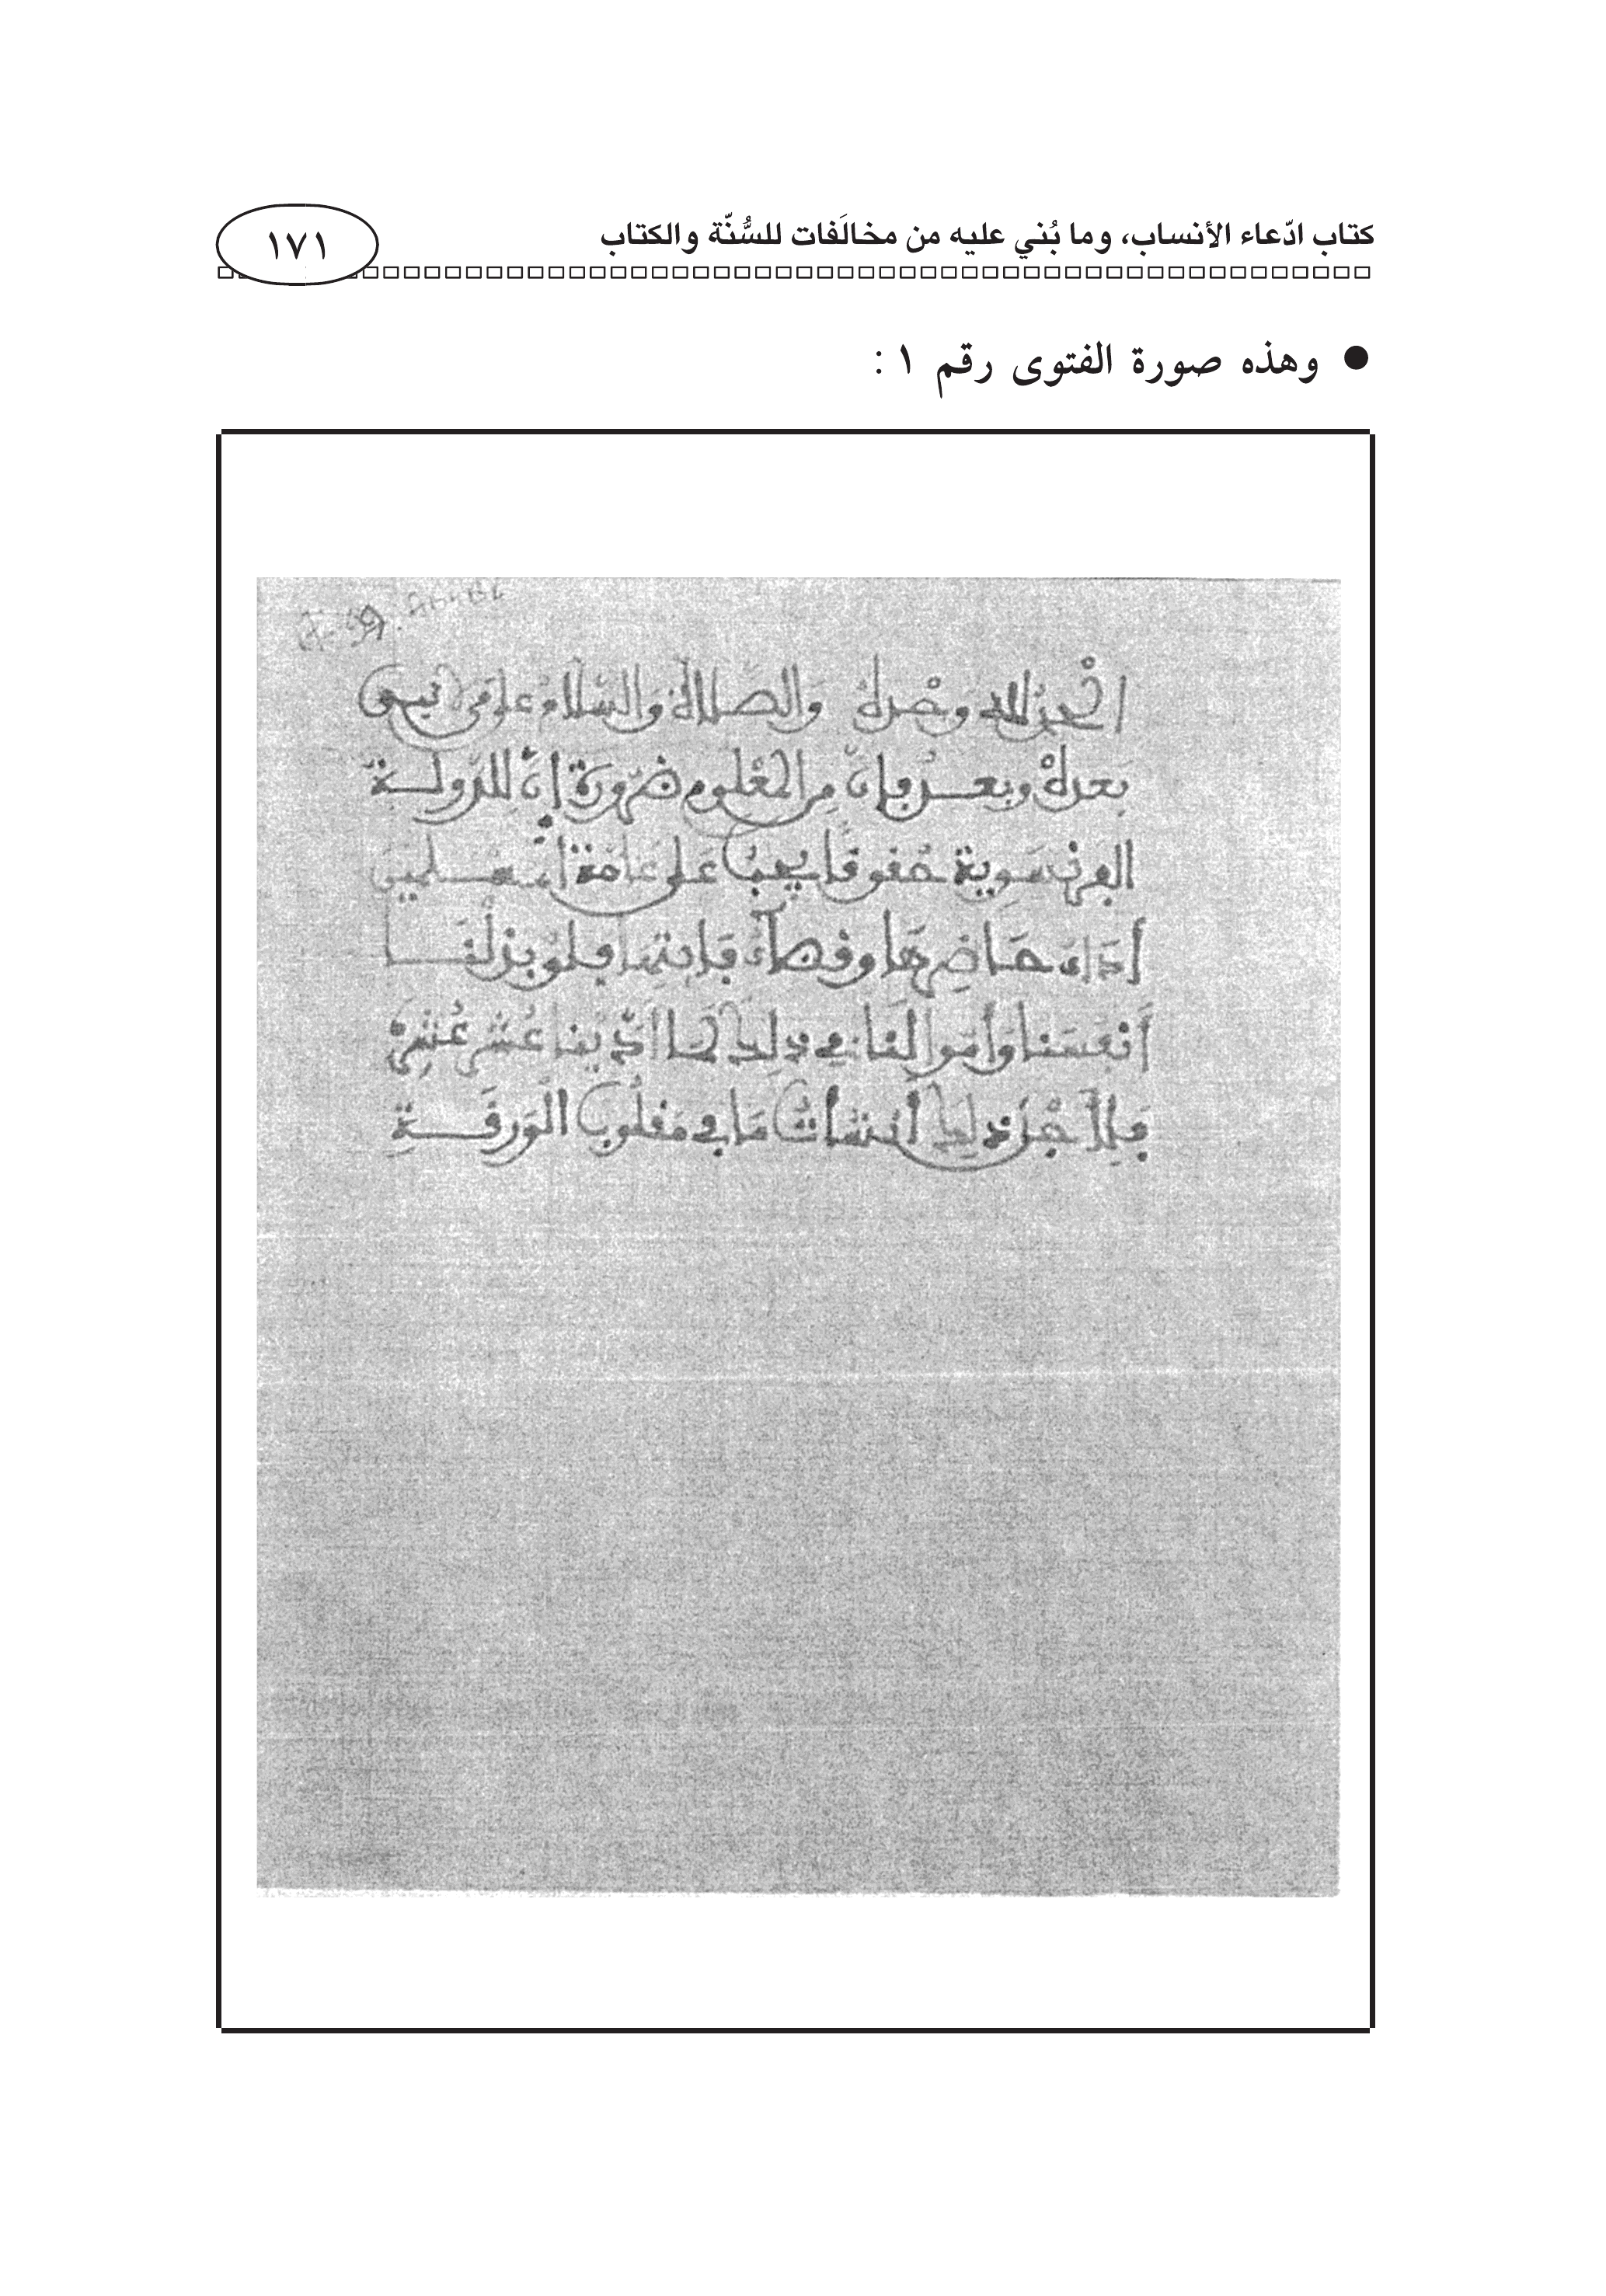 كتاب ادّعاء الأنساب، وما بُني عليه من مخالَفات للسُّنّة والكتاب
١٧١
● وهذه صورة الفتوى رقم ١ :
الحمد لله وحده والصلاة والسلام على من لا نبي
بعده وبعد فإن من المعلوم ضرورة أن للدولة
الفرنسوية حقوقا يجب على عامة المسلمين
أداء حاضرها وقضاء فايتها فلو بذلنا
أنفسنا وأموالنا في ذلك لما أدّينا عشر عشر
فلأجل ذلك أنشأت ما في مقلوب الورقة